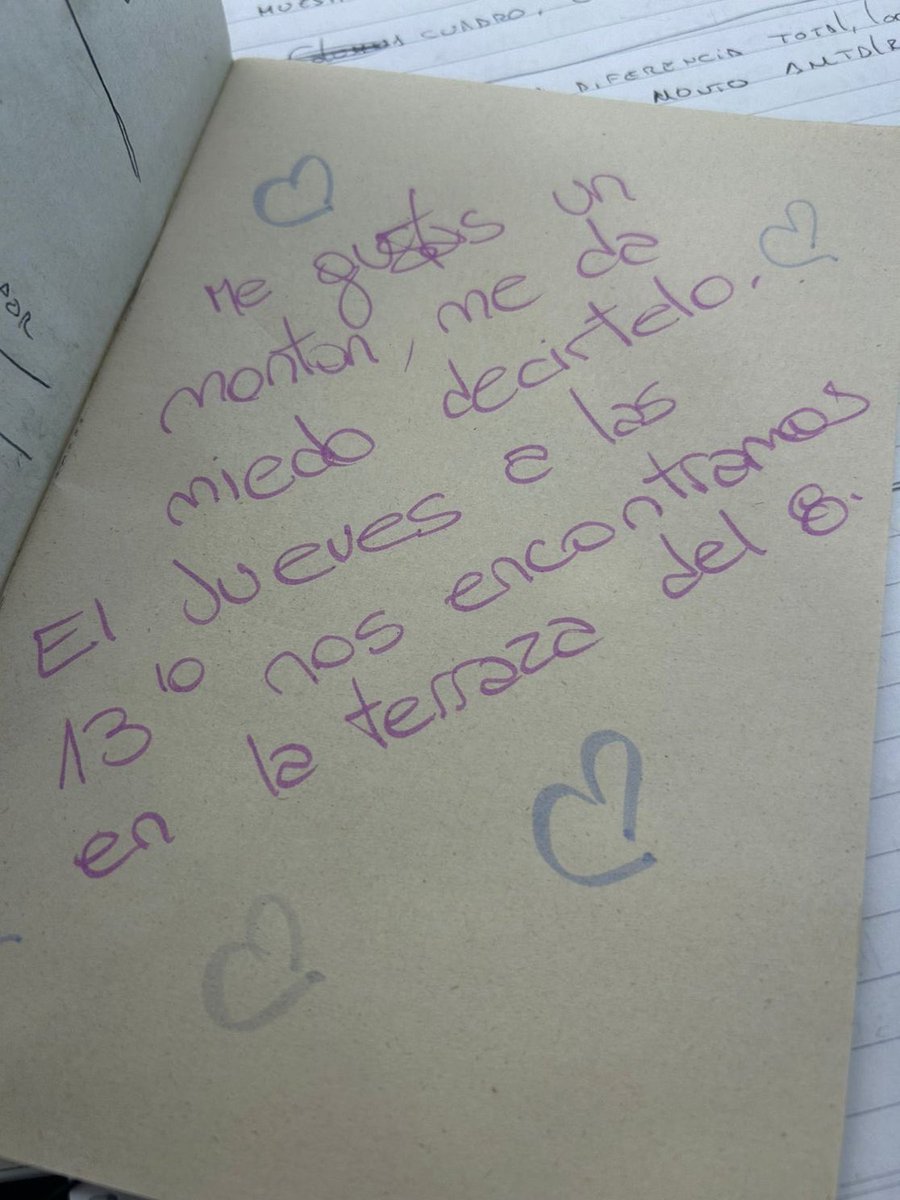 CUADRO,
DIFERENCIA TOTAL,
MONTO
Me gustas un
monton, me da
miedo decirtelo.
El Jueves a las
13 10 nos encontramos
en la terraza del 8.